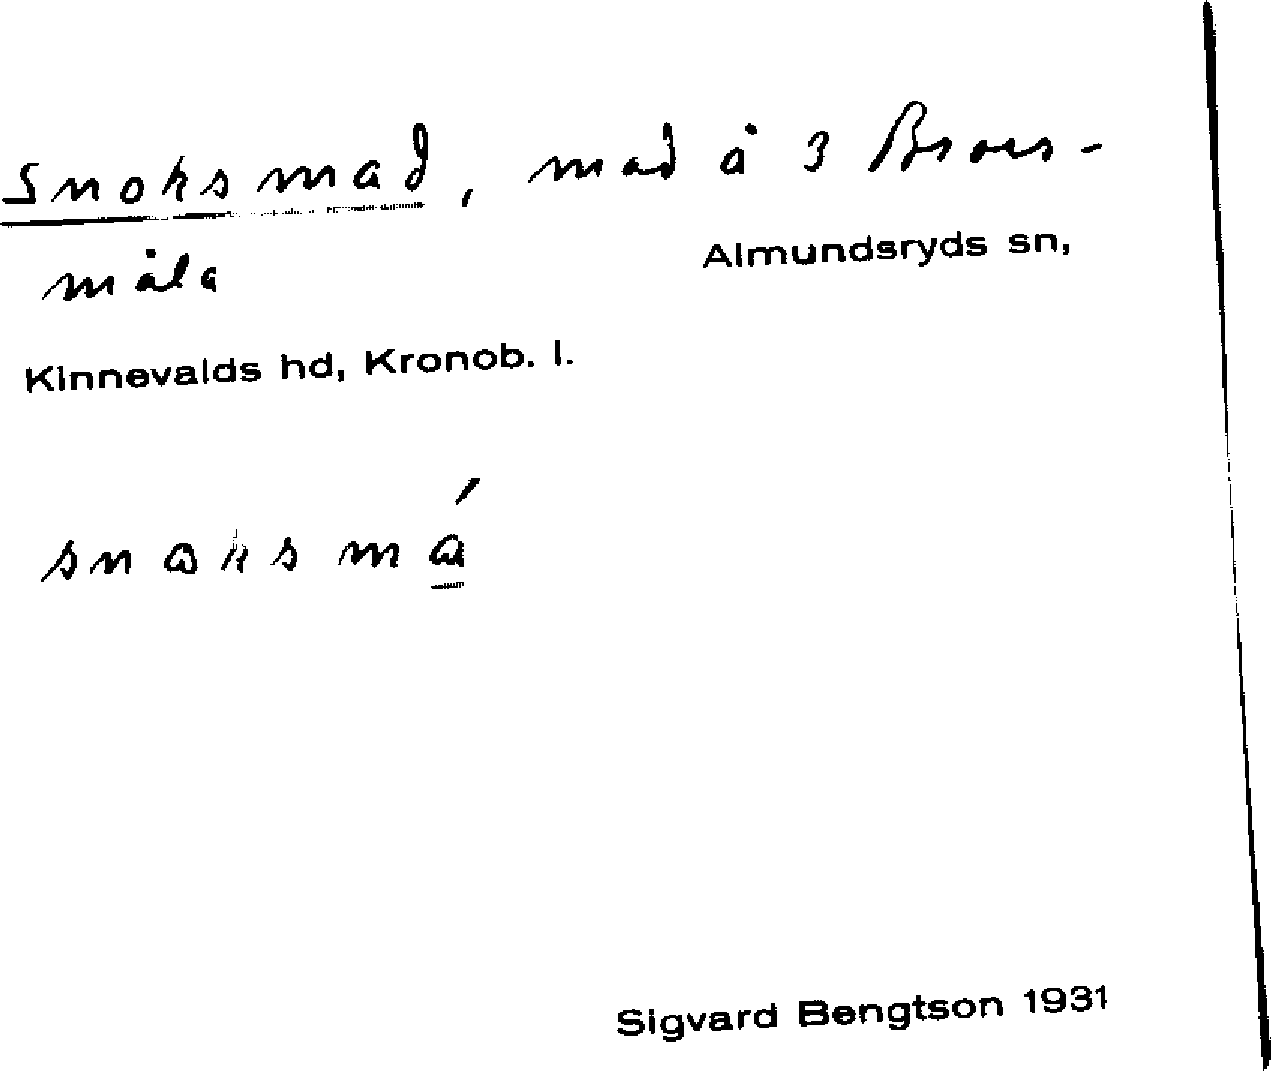 Snoksmad, mad å 3 Broers-
måla
Almundsryds sn,
Kinnevalds hd, Kronob. l.
snɷks mɑ́
Sigvard Bengtson 1931